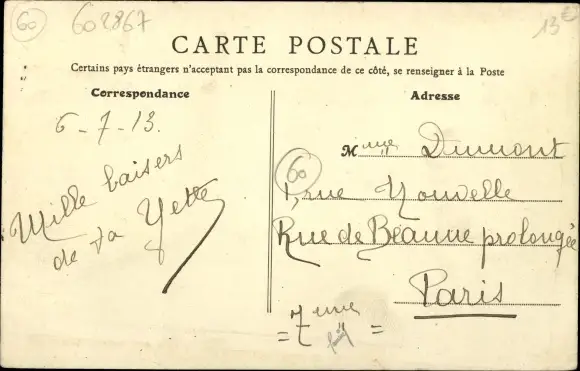 60
602867
13€
CARTE POSTALE
Certains pays étrangers n'acceptant pas la correspondance de ce côté, se renseigner à la Poste
Correspondance
6-7-13.
Mille baisers
de ta Yette
Adresse
Mme Dumont
60
1, rue Nouvelle
Rue de Beaune prolongée
Paris
= 7ème =